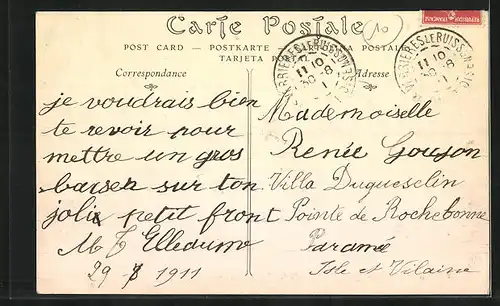 Carte Postale
10
POST CARD — POSTKARTE — CARTOLINA POSTALE
TARJETA POSTAL
Correspondance
Adresse
VERRIERES LE BUISSON
11 10
30 -8
VERRIERES LE BUISSON
11 10
30 -8
je voudrais bien
te revoir pour
mettre un gros
baiser sur ton
joli petit front
M T Elleaume
29 8 1911
Mademoiselle
Renée Goujon
Villa Duguesclin
Pointe de Rochebonne
Paramé
Isle et Vilaine